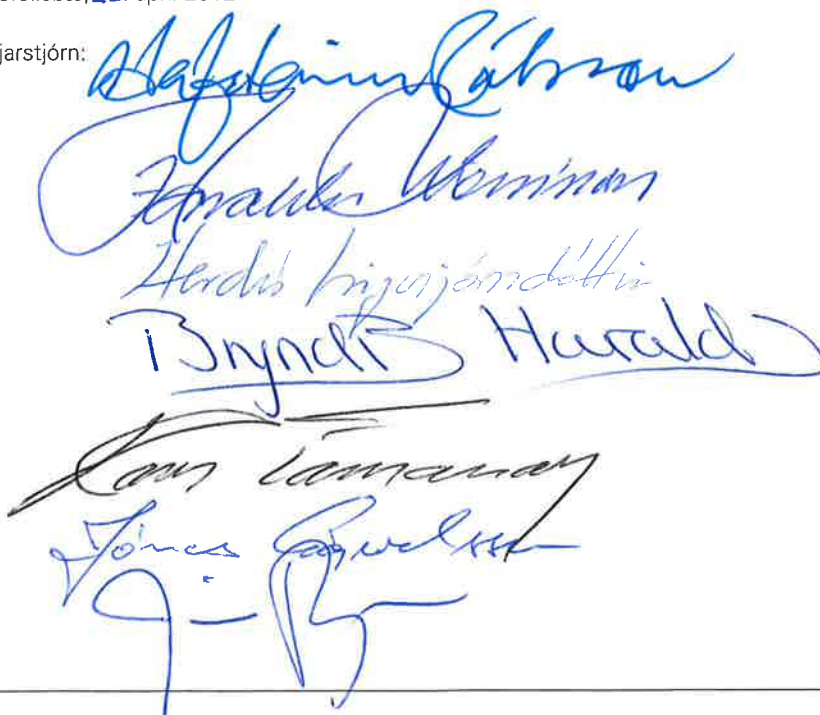 jarstjórn:
Hafsteinn Pálsson
Haraldur Sverrisson
Herdís Sigurjónsdóttir
Bryndís Haralds
Tómasson
Jónas Sigurðsson